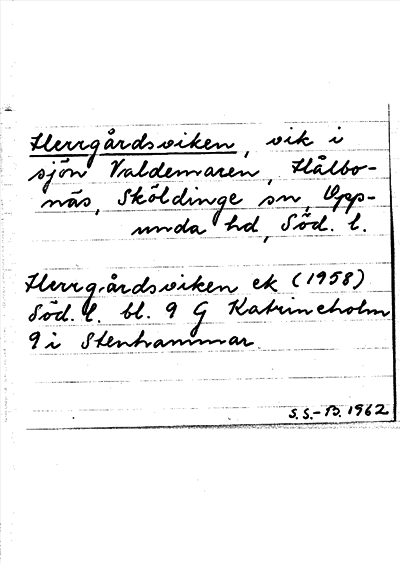 Herrgårdsviken, vik i
sjön Valdemaren, Hålbo-
näs, Sköldinge sn, Opp-
unda hd, Söd. l.
Herrgårdsviken ek (1958)
Söd. l. bl. 9 G Katrineholm
9 i Stenhammar
S.S.-B. 1962